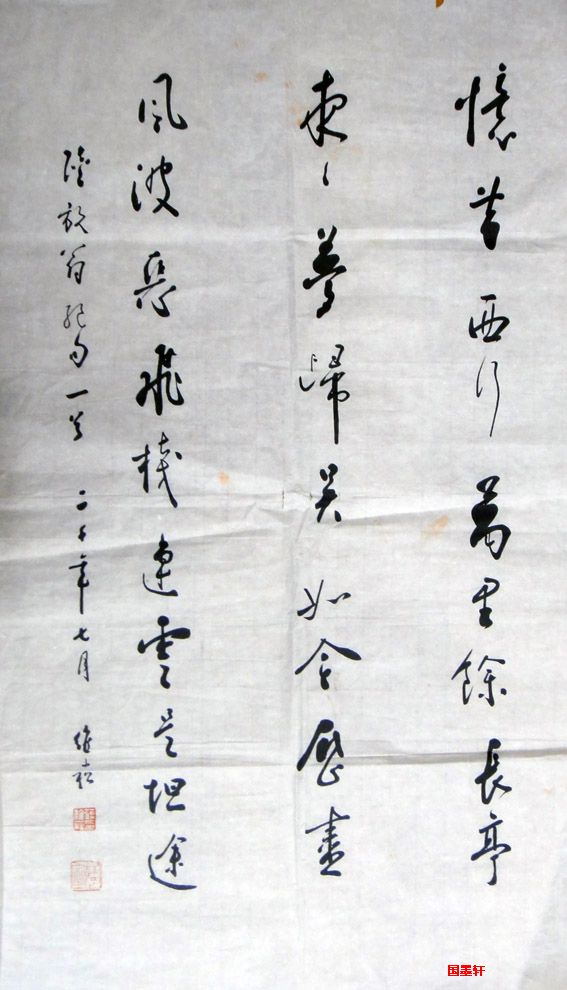 憶昔西行萬里餘長亭
夜〻夢歸吳如今歷盡
風波惡飛棧連雲是坦途
陸放翁絕句一首 二千年七月 維崧
国墨轩